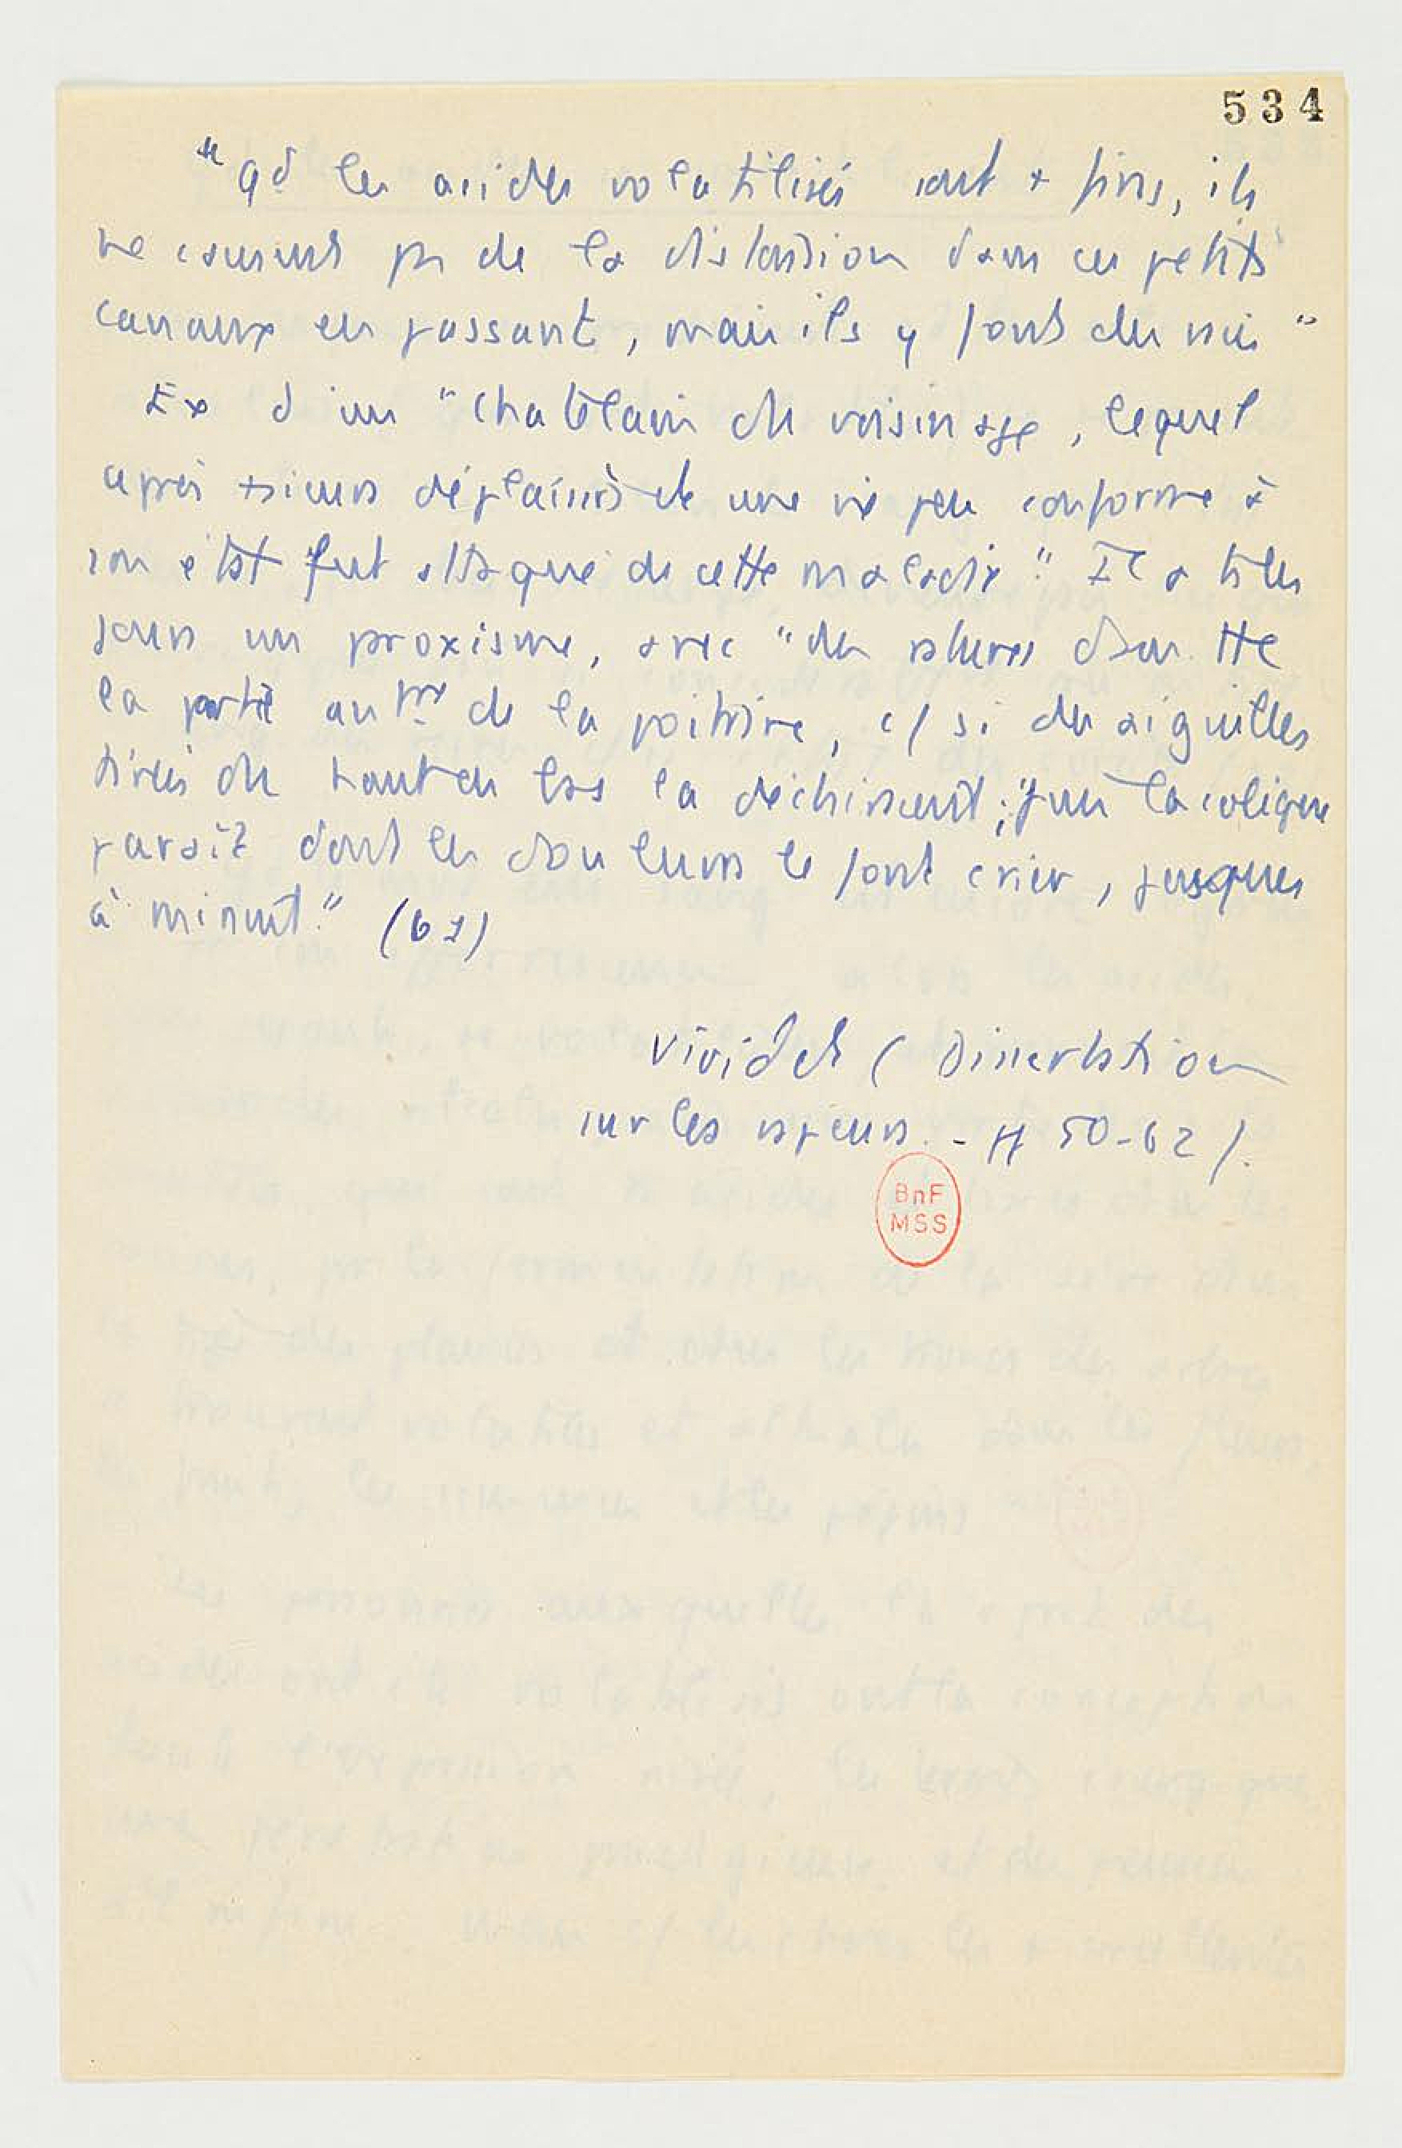 534
"qd les acides volatilisés sont + fins, ils
ne causent ps de la distension dans ces petits
canaux en passant, mais ils y font des
Ex d'un "chatelain du voisinage, lequel
après +sieurs déplaisirs et une vie peu conforme à
son état fut attaqué de cette maladie". Il a
un proxisme, avec "des dans tte
la partie antre de la poitrine, c/ si des aiguilles
tirées de haut en bas la déchiraient; puis la colique
parait dont les douleurs le font crier, jusques
à minuit." (61)
Viridet (Dissertation
sur les vapeurs. - pp 50-62).
BnF
MSS